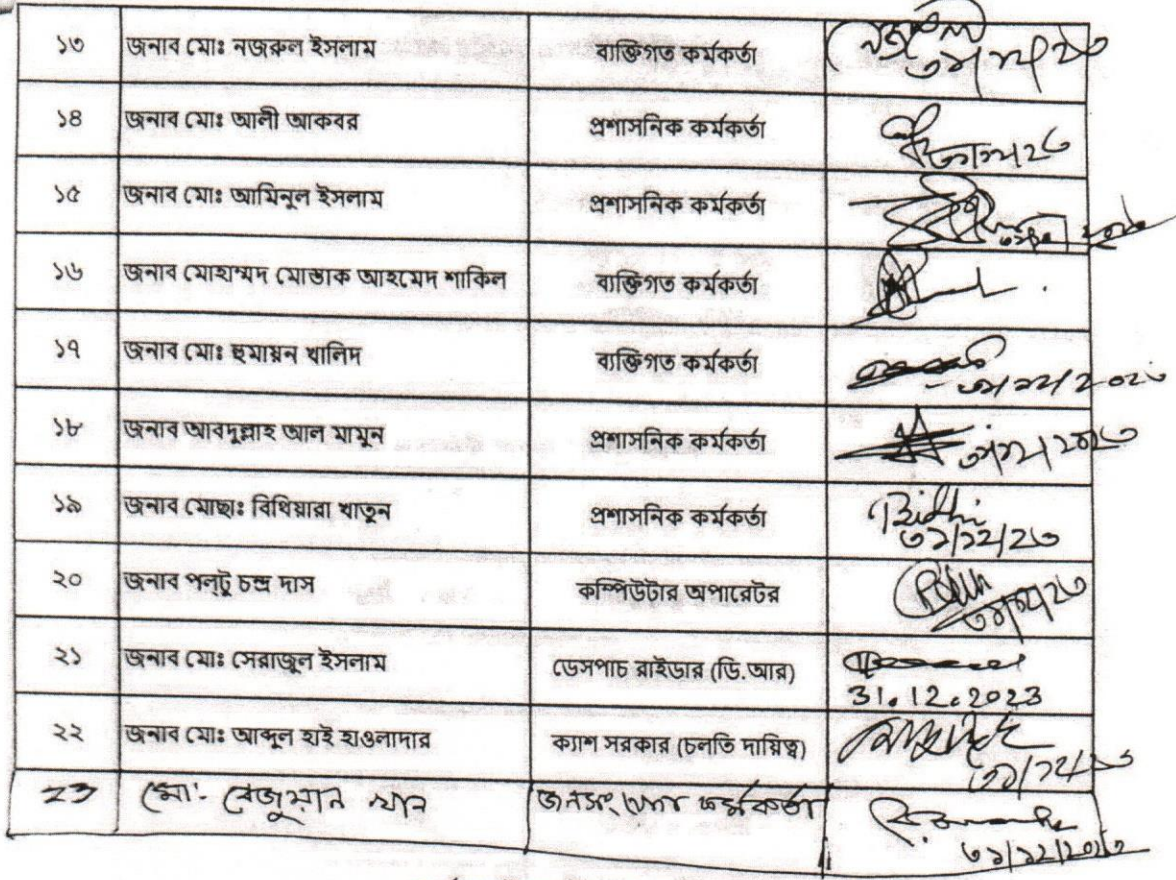 ১৩ জনাব মোঃ নজরুল ইসলাম ব্যক্তিগত কর্মকর্তা
১৪ জনাব মোঃ আলী আকবর প্রশাসনিক কর্মকর্তা
১৫ জনাব মোঃ আমিনুল ইসলাম প্রশাসনিক কর্মকর্তা
১৬ জনাব মোহাম্মদ মোস্তাক আহমেদ শাকিল ব্যক্তিগত কর্মকর্তা
১৭ জনাব মোঃ হুমায়ন খালিদ ব্যক্তিগত কর্মকর্তা
৩১/১২/২০২৩
১৮ জনাব আবদুল্লাহ আল মামুন প্রশাসনিক কর্মকর্তা
৩১/১২/২০২৩
১৯ জনাব মোছাঃ বিথিয়ারা খাতুন প্রশাসনিক কর্মকর্তা Bidhi
৩১/১২/২৩
২০ জনাব পল্টু চন্দ্র দাস কম্পিউটার অপারেটর
২১ জনাব মোঃ সেরাজুল ইসলাম ডেসপাচ রাইডার (ডি.আর)
31.12.2023
২২ জনাব মোঃ আব্দুল হাই হাওলাদার ক্যাশ সরকার (চলতি দায়িত্ব)
৩১/১২/২৩
২৩ মোঃ রেজুয়ান খান জনসংযোগ কর্মকর্তা
৩১/১২/২০২৩